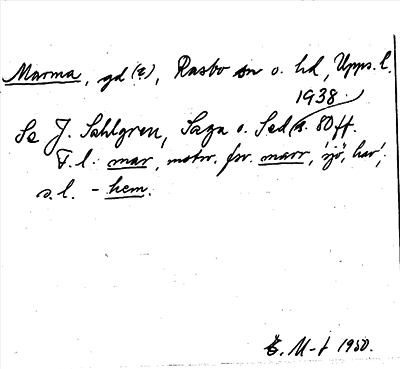 Marma, gd (2), Rasbo sn o. hd, Upps. l.
1938.
Se J. Sahlgren, Saga o. Sed s. 80 ff.
F. l. mar, motsv. fsv. marr, 'sjö, hav',
s. l. - hem.
M-t 1950.